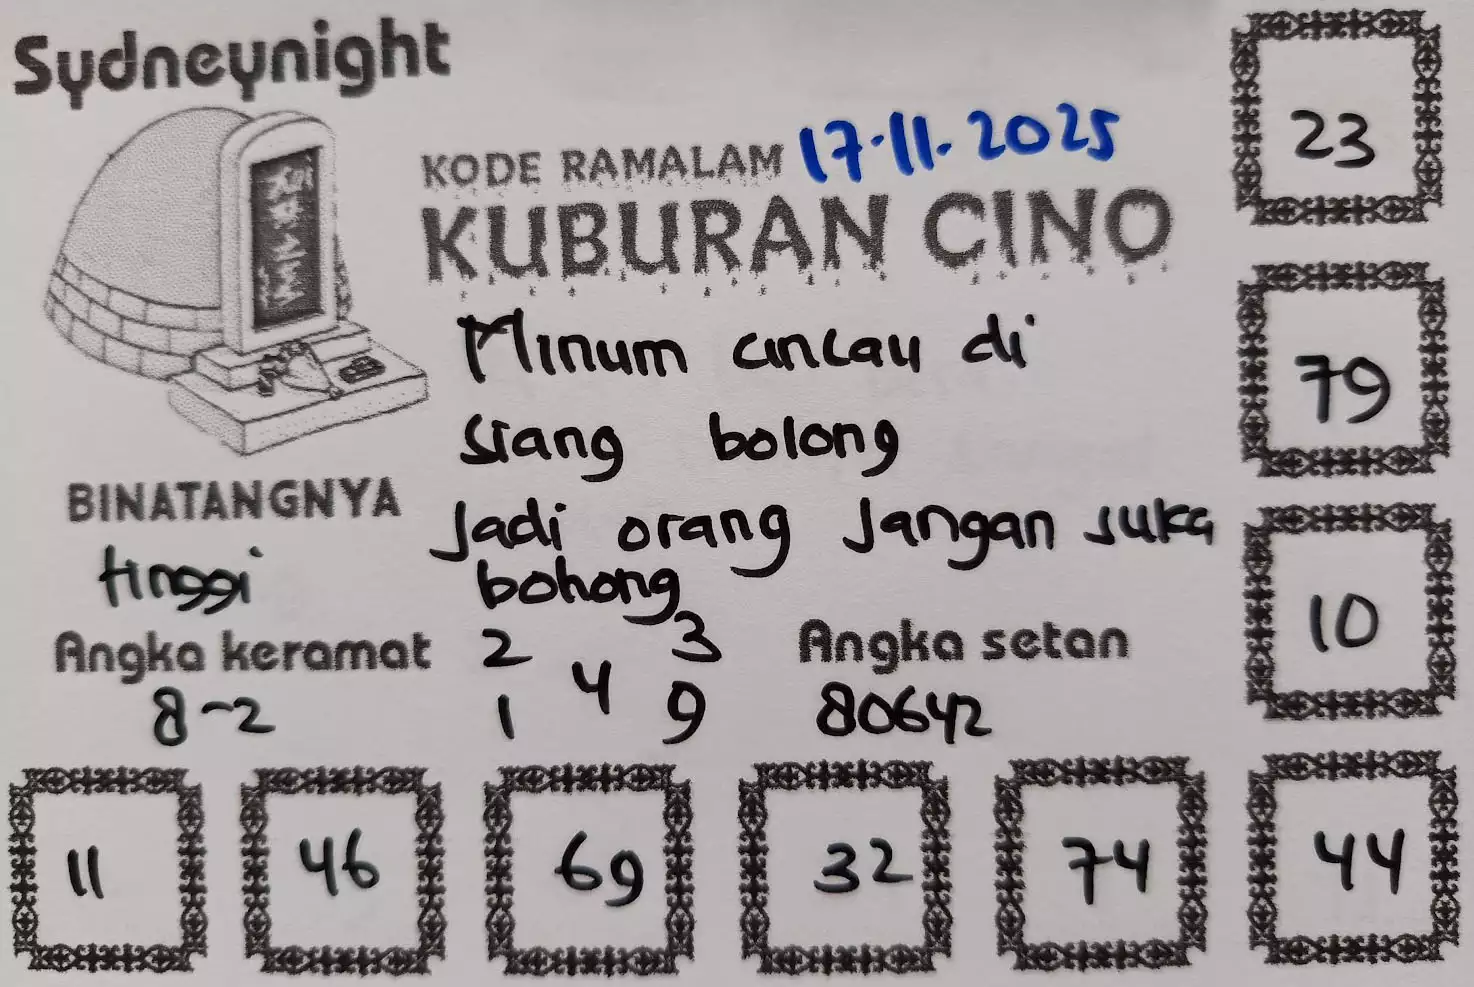 Sydneynight
KODE RAMALAM 17.11.2025
KUBURAN CINO
Minum cincau di
siang bolong
Jadi orang Jangan suka
bohong
BINATANGNYA
tinggi
Angka keramat
8-2
2 3
4
1 9
Angka setan
80642
23
79
10
11 46 69 32 74 44